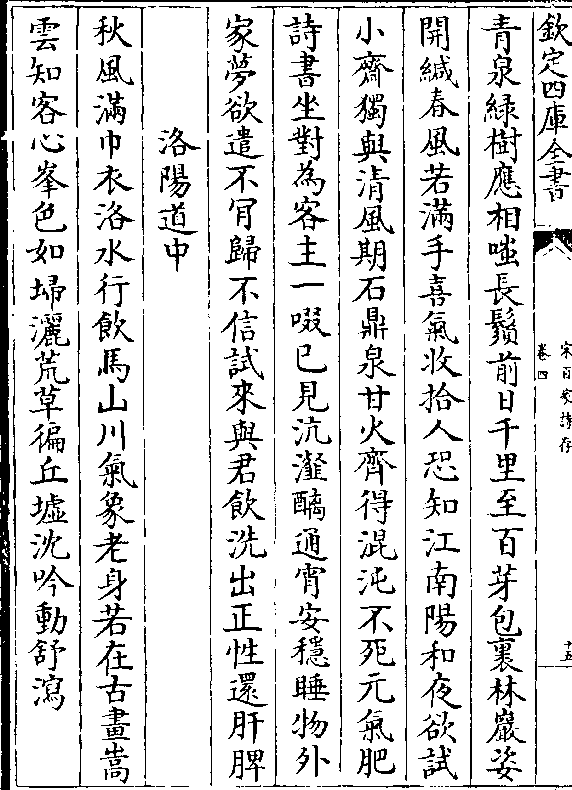 欽定四庫全書
宋百家詩存
卷四
十五
青泉緑樹應相嗤長鬚前日千里至百芽包裏林巖姿
開緘春風若滿手喜氣收拾人恐知江南陽和夜欲試
小齋獨與清風期石鼎泉甘火齊得混沌不死元氣肥
詩書坐對為客主一啜已見沆瀣醨通宵安穏睡物外
家夢欲遣不肎歸不信試來與君飲洗出正性還肝脾
洛陽道中
秋風滿巾衣洛水行飲馬山川氣象老身若在古畫嵩
雲知客心峯色如埽灑荒草徧丘墟沈吟動舒瀉